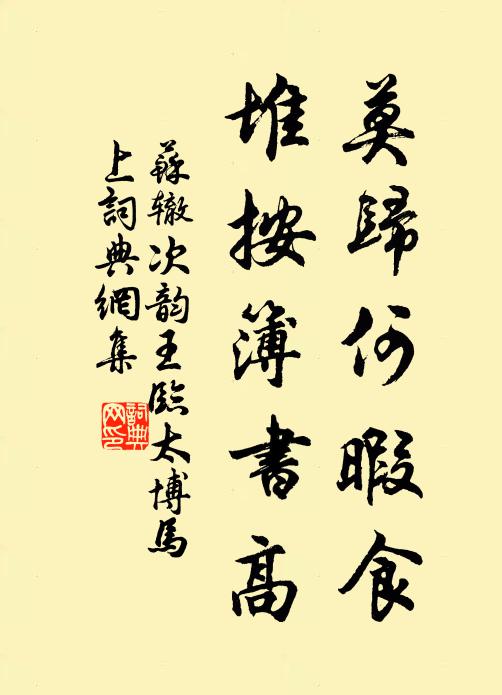 莫歸何暇食
堆按簿書高
蘇辙次韵王臨太博馬
上詞典網集
詞典
网印